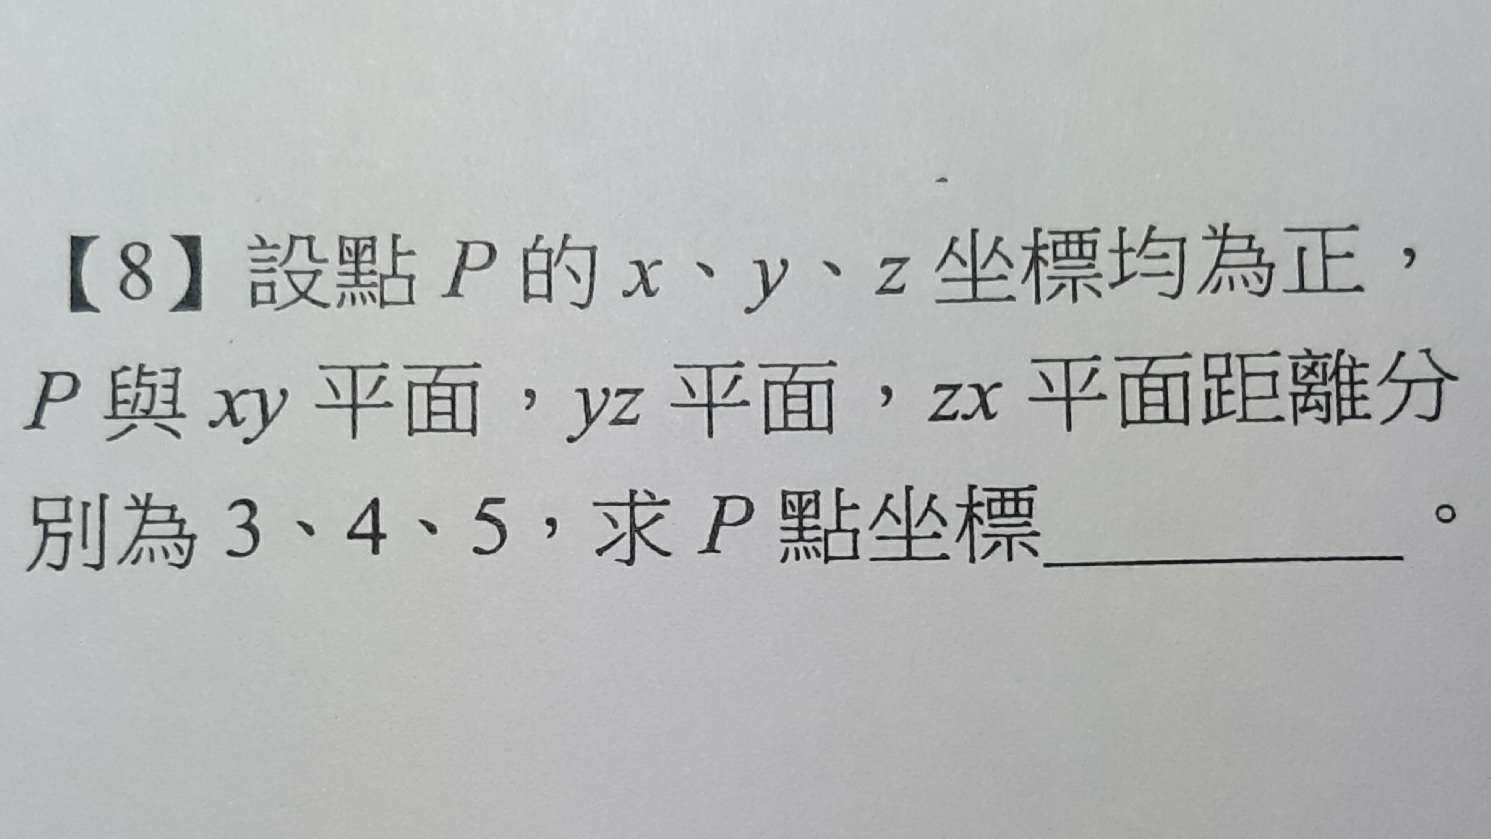 【8】設點 P 的 x、y、z 坐標均為正，
P 與 xy 平面，yz 平面，zx 平面距離分
別為 3、4、5，求 P 點坐標__________。